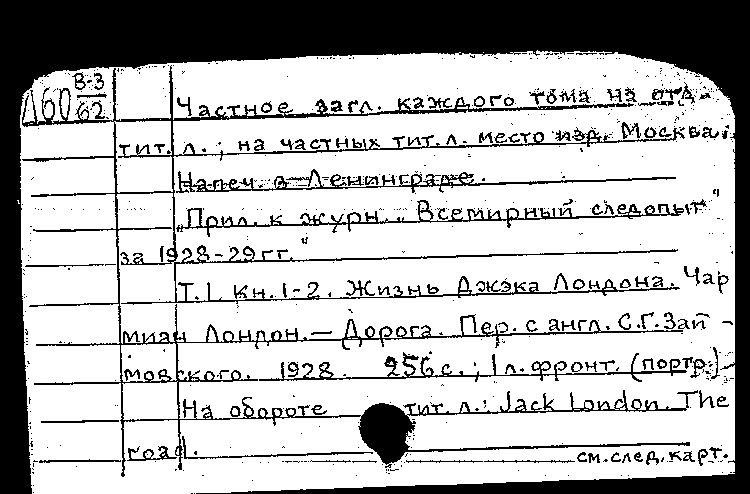 Д60 В-3/62
Частное загл. каждого тома на отд.
тит. л.; на частных тит. л. место изд. Москва.
Напеч. в Ленинграде.
„Прил. к журн. „Всемирный следопыт"
за 1928-29 гг."
Т. 1. Кн. 1-2. Жизнь Джэка Лондона. Чар
миан Лондон. — Дорога. Пер. с англ. С.Г. Зай-
мовского. 1928. 256 с.; 1 л. фронт. (портр.)
На обороте тит. л.: Jack London. The
road.
см. след. карт.